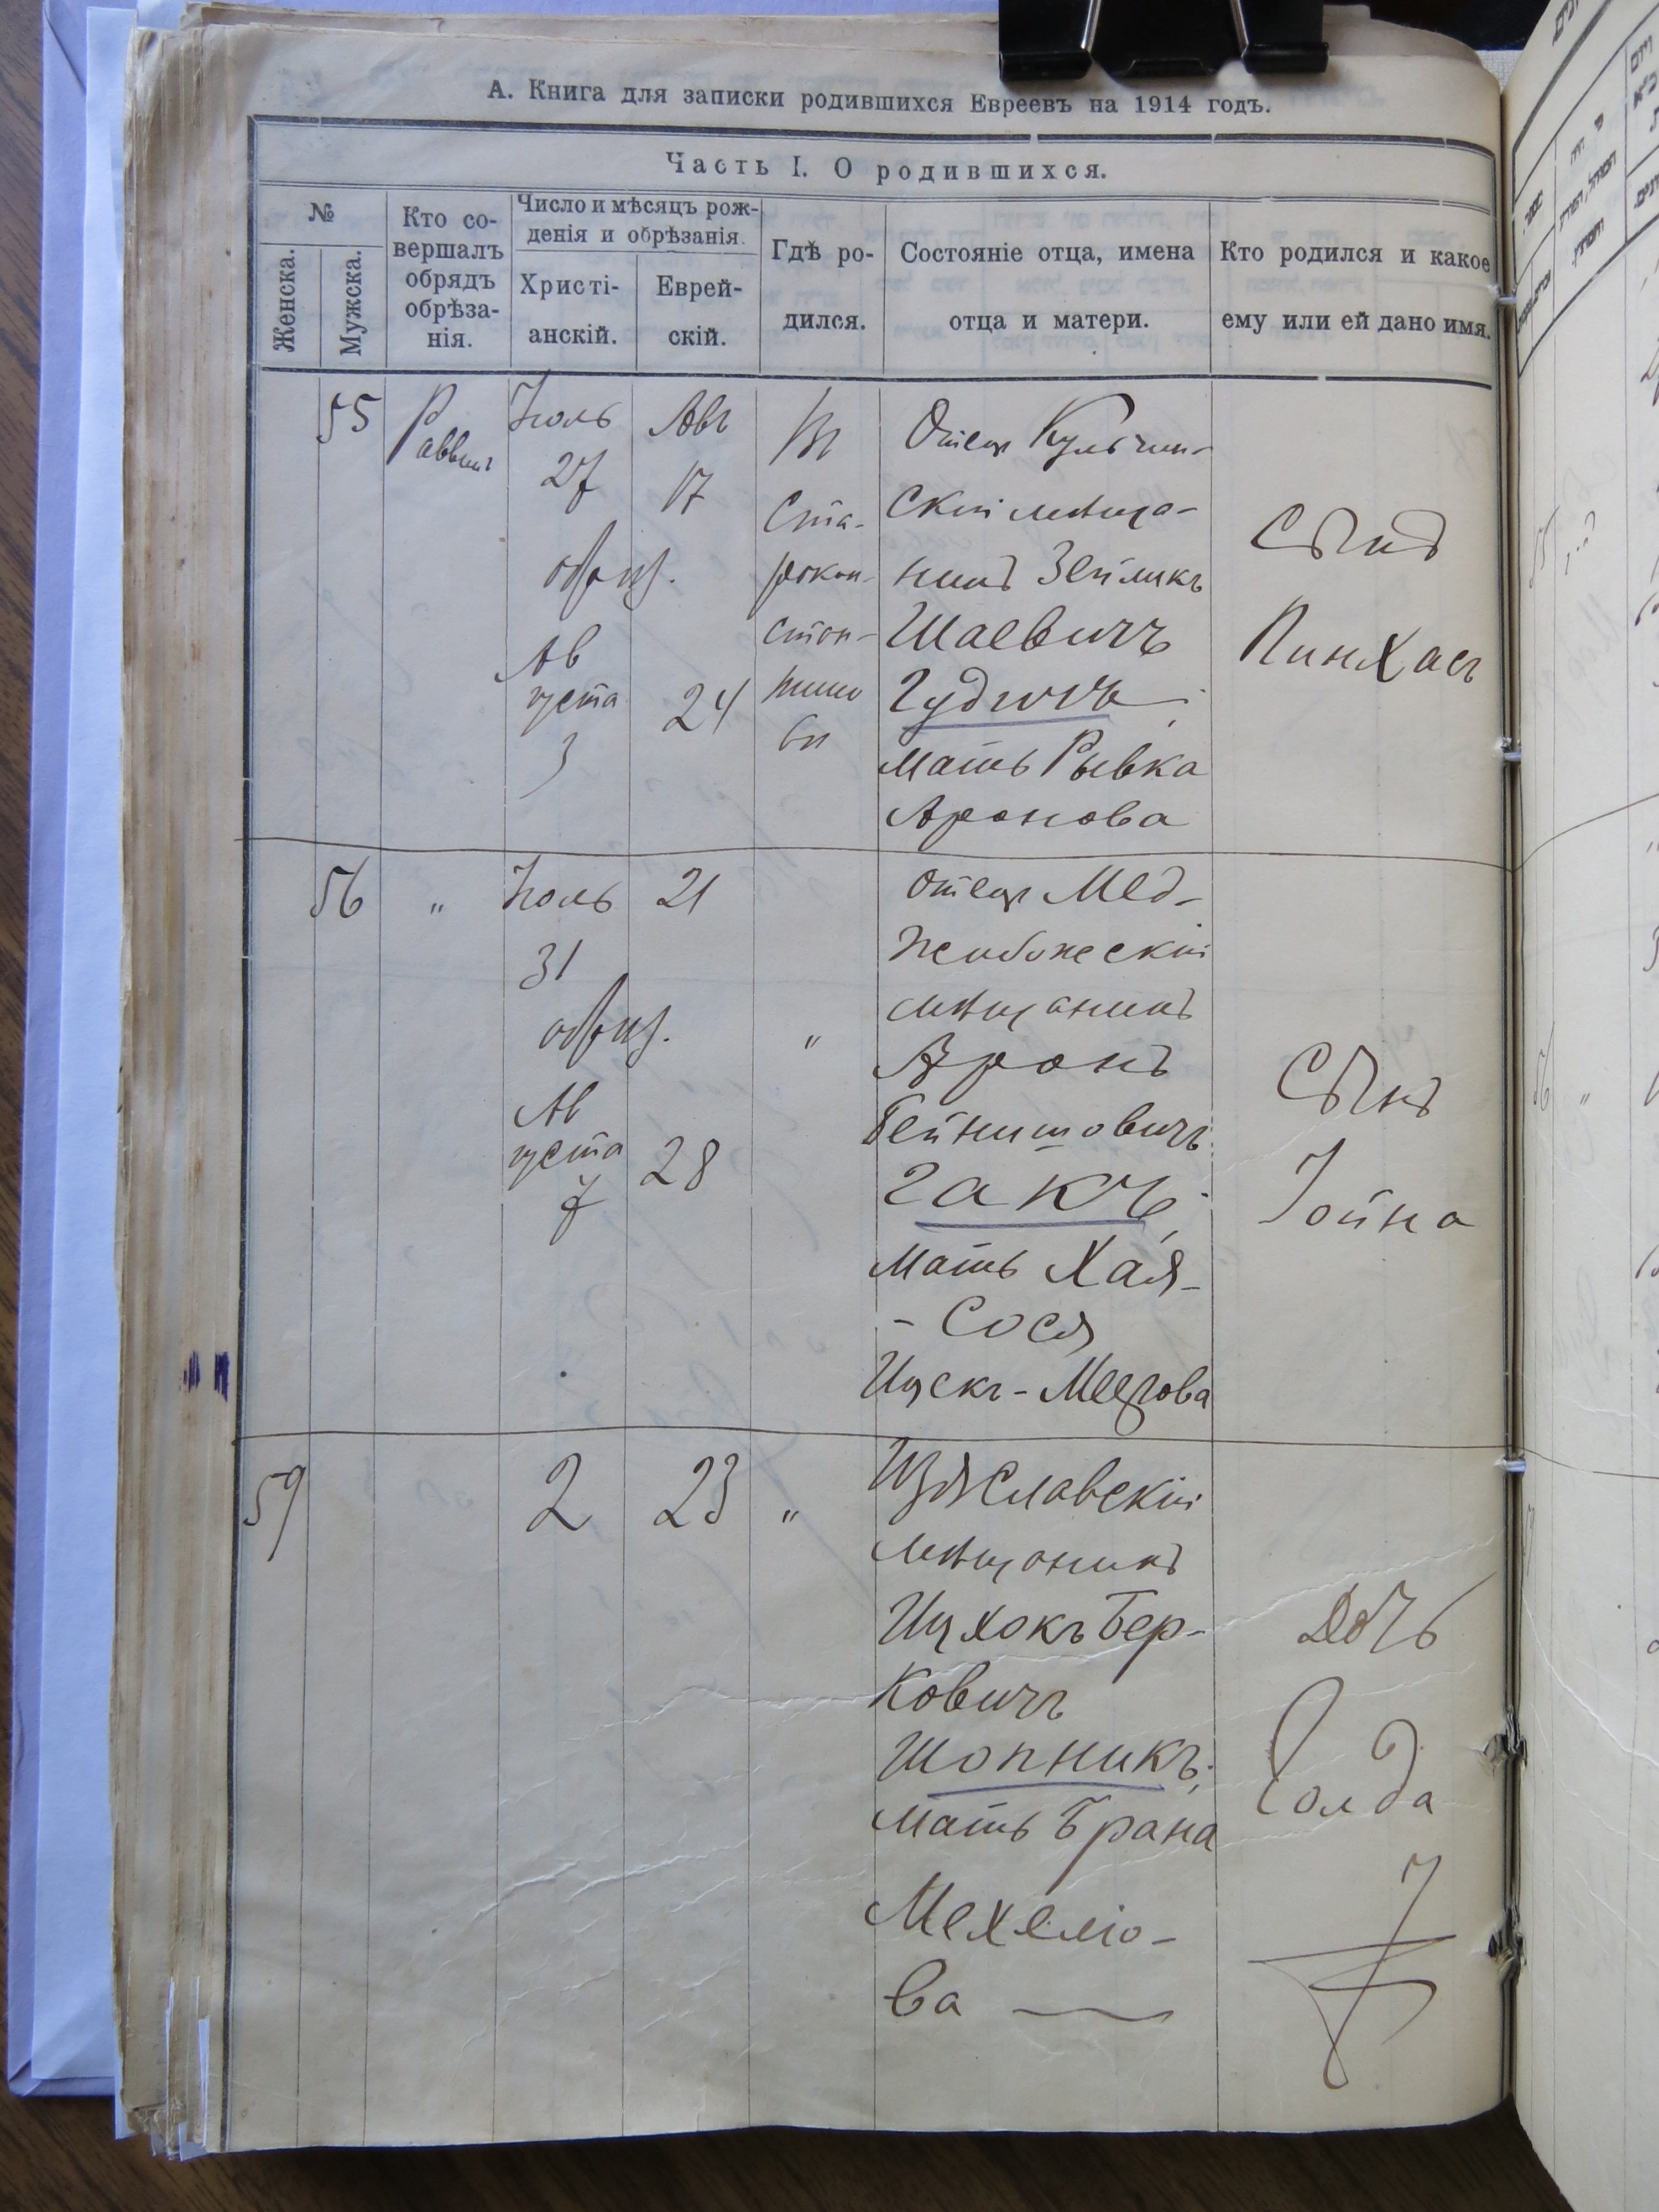 А. Книга для записки родившихся Евреевъ на 1914 годъ.
Часть I. О родившихся.
№
Женска.
Мужска.
Кто со-
вершалъ
обрядъ
обрѣза-
нія.
Число и мѣсяцъ рож-
денія и обрѣзанія.
Христі-
анскій.
Еврей-
скій.
Гдѣ ро-
дился.
Состояніе отца, имена
отца и матери.
Кто родился и какое
ему или ей дано имя.
55
Раввинъ
Іюль
27
обрѣз.
Ав
густа
3
Авъ
17
24
Въ
Ста-
рокон-
стан-
тино
вѣ
Отецъ Кульчин-
скій мѣща-
нинъ Зейликъ
Шаевичъ
Гудичъ;
мать Рывка
Аронова
Сынъ
Пинхасъ
56
"
Іюль
31
обрѣз.
Ав
густа
7
21
28
"
Отецъ Мед-
жибожескій
мѣщанинъ
Аронъ
Бейнишовичъ
Гакъ;
мать Хая-
- Сося
Ицекъ-Меерова
Сынъ
Іойна
59
2
23
"
Изяславскій
мѣщанинъ
Ицхокъ Бер-
ковичъ
Шопникъ;
мать Брана
Мехелю-
ва
Дочь
Голда